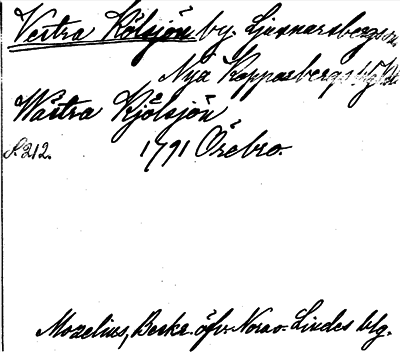 Vestra Kölsjön by. Ljusnarsbergs sn.
Nya Kopparbergs blg.
Wästra Kjölsjön
S. 212. 1791 Örebro.
Mozelius, Beskr. öfv. Nora o. Lindes blg.